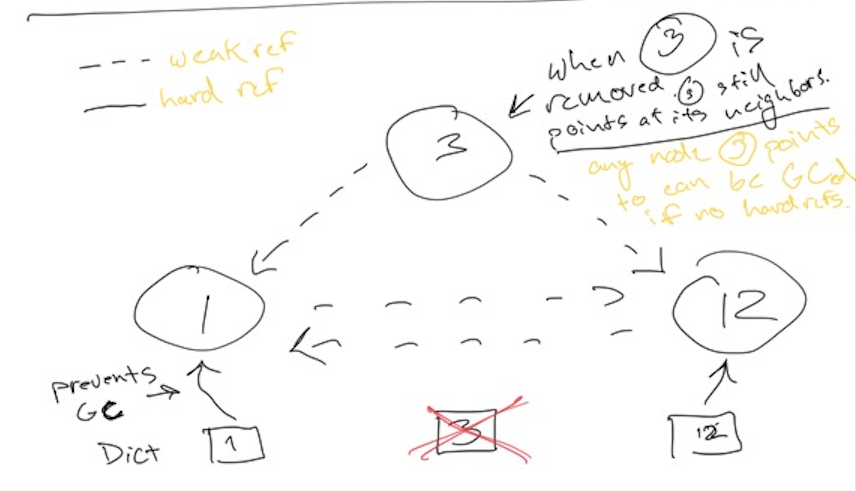 weak ref
hard ref
when 3 is
removed. 3 still
points at its neighbors.
any node 3 points
to can be GCed
if no hard refs.
3
1
12
prevents
GC
Dict
1
3
12